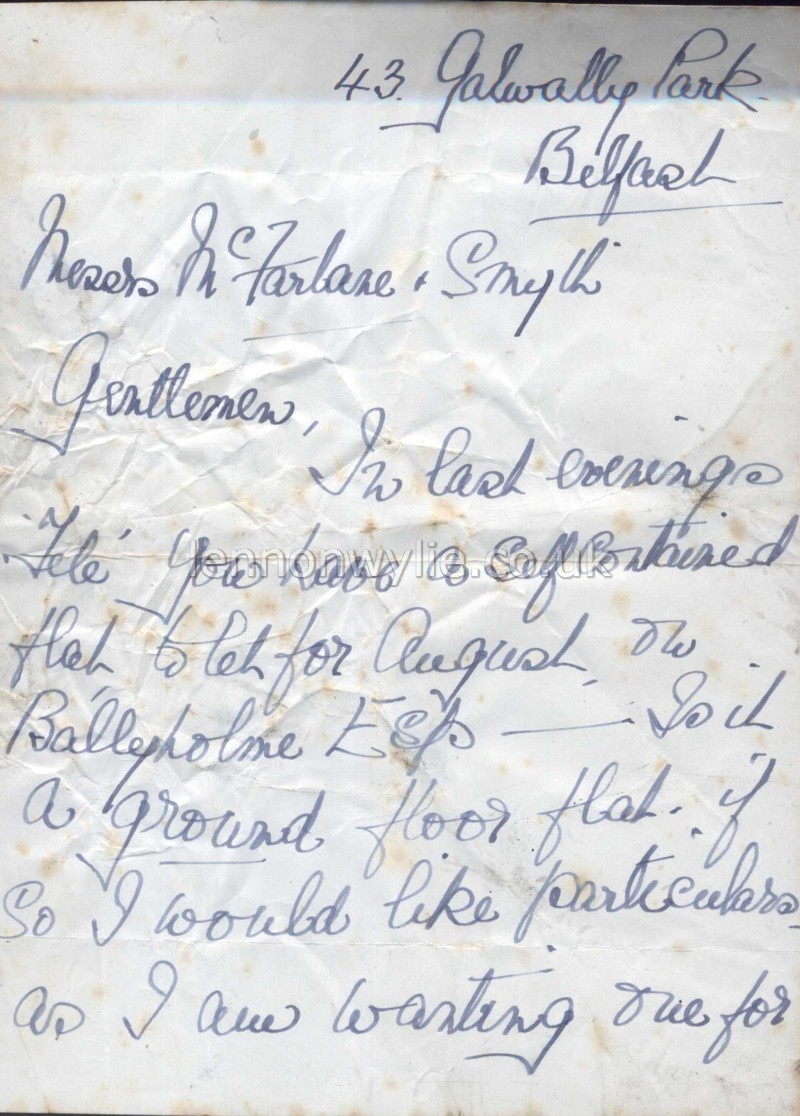 43. Galwally Park.
Belfast
Messrs McFarlane & Smyth
Gentlemen,
In last evenings
'Tele' you have a Self Contained
flat to let for August, on
Ballyholme Esp — Is it
a ground floor flat. if
So I would like particulars
as I am wanting one for
lennonwylie.co.uk